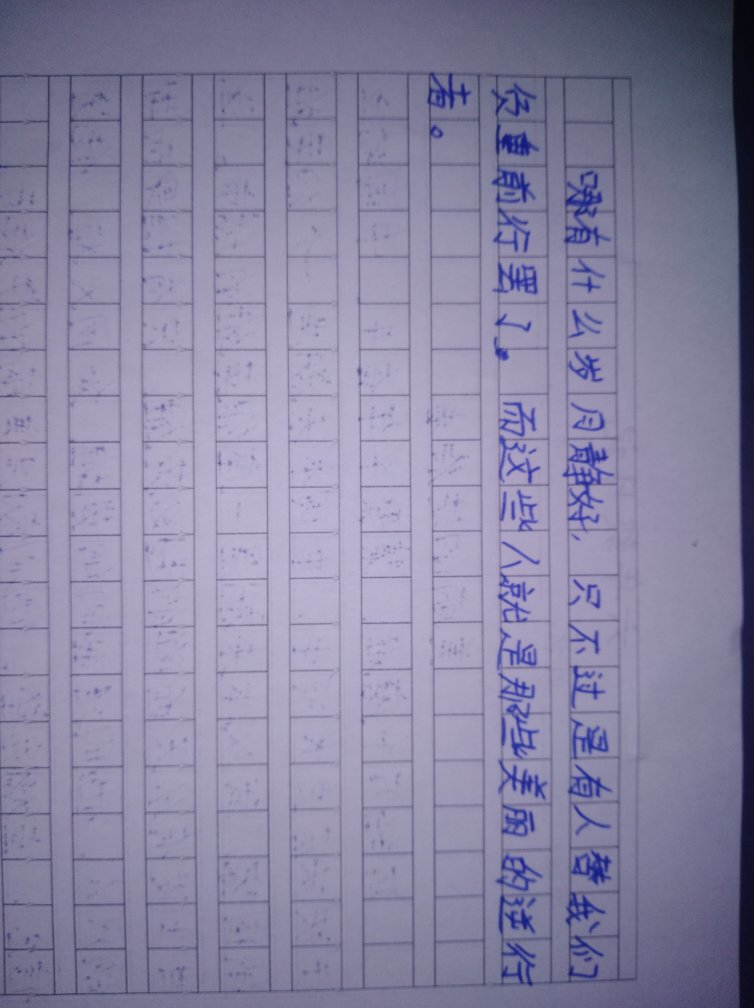 哪有什么岁月静好，只不过是有人替我们
负重前行罢了。而这些人就是那些美丽的逆行
者。